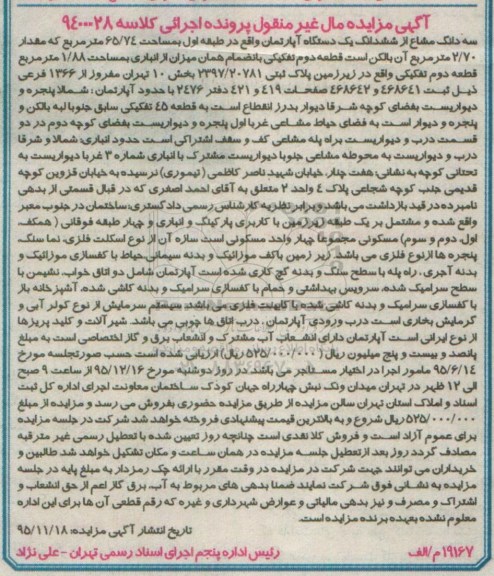 آگهی مزایده مال غیر منقول پرونده اجرائی کلاسه ۹۴۰۰۰۲۸
سه دانگ مشاع از ششدانگ یک دستگاه آپارتمان واقع در طبقه اول بمساحت ۶۵/۷۴ مترمربع که مقدار
۲/۷۰ مترمربع آن بالکن است قطعه دوم تفکیکی بانضمام همان میزان از انباری بمساحت ۱/۸۸ مترمربع
قطعه دوم تفکیکی واقع در زیرزمین پلاک ثبتی ۲۳۹۷/۲۰۷۸۱ بخش ۱۰ تهران مفروز از ۱۳۶۶ فرعی
ذیل ثبت ۴۶۸۶۴۱ و ۴۶۸۶۴۲ صفحات ۴۱۹ و ۴۲۱ دفتر ۲۴۷۶ با حدود آپارتمان: شمالا پنجره و
دیواریست بفضای کوچه شرقا دیوار بدرز انقطاع است به قطعه ۴۵ تفکیکی سابق جنوبا لبه بالکن و
پنجره و دیوار است به فضای حیاط مشاعی غربا اول پنجره و دیواریست بفضای کوچه دوم در دو
قسمت درب و دیواریست براه پله مشاعی کف و سقف اشتراکی است حدود انباری: شمالا و شرقا
درب و دیواریست به محوطه مشاعی جنوبا دیواریست مشترک با انباری شماره ۳ غربا دیواریست به
تحتانی کوچه به نشانی: هفت چنار، خیابان شهید ناصر کاظمی (تیموری) نرسیده به خیابان قزوین کوچه
قدیمی جنب کوچه شجاعی پلاک ۴ واحد ۲ متعلق به آقای احمد اصغری که در قبال قسمتی از بدهی
نامبرده در قید بازداشت می باشد و برابر نظریه کارشناس رسمی دادگستری، ساختمان در جنوب معبر
واقع شده و مشتمل بر یک طبقه زیرزمین با کاربری پارکینگ و انباری و چهار طبقه فوقانی (همکف،
اول، دوم و سوم) مسکونی مجموعا چهار واحد مسکونی است. سازه آن از نوع اسکلت فلزی، نما سنگ،
پنجره ها از نوع فلزی می باشد. زیر زمین با کف موزائیک و بدنه سیمانی حیاط با کفسازی موزائیک و
بدنه آجری، راه پله با سطح سنگ و بدنه گچ کاری شده است آپارتمان شامل دو اتاق خواب، نشیمن با
سطح سرامیک شده، سرویس بهداشتی و حمام با کفسازی سرامیک و بدنه کاشی شده، آشپزخانه باز
با کفسازی سرامیک و بدنه کاشی شده با کابینت فلزی می باشد. سیستم سرمایش از نوع کولر آبی و
گرمایش بخاری است درب ورودی آپارتمان، درب اتاق ها چوبی می باشد. شیر آلات و کلید پریزها
از نوع ایرانی است آپارتمان دارای انشعاب آب مشترک و انشعاب برق و گاز اختصاصی است به مبلغ
پانصد و بیست و پنج میلیون ریال (۵۲۵/۰۰۰/۰۰۰ ریال) ارزیابی شده است حسب صورتجلسه مورخ
۹۵/۶/۱۴ مامور اجرا در اختیار مستاجر می باشد. در روز دوشنبه مورخ ۹۵/۱۲/۱۶ از ساعت ۹ صبح
الی ۱۲ ظهر در تهران میدان ونک نبش چهارراه جهان کودک ساختمان معاونت اجرای اداره کل ثبت
اسناد و املاک استان تهران سالن مزایده از طریق مزایده حضوری بفروش می رسد و مزایده از مبلغ
۵۲۵/۰۰۰/۰۰۰ ریال شروع و به بالاترین قیمت پیشنهادی فروخته خواهد شد شرکت در جلسه مزایده
برای عموم آزاد است و فروش کلا نقدی است چنانچه روز تعیین شده با تعطیل رسمی غیر مترقبه
مصادف گردد روز بعد از تعطیل جلسه مزایده در همان ساعت و مکان تشکیل خواهد شد طالبین و
خریداران می توانند جهت شرکت در مزایده در وقت مقرر با ارائه چک رمزدار به مبلغ پایه در جلسه
مزایده به نشانی فوق شرکت نمایند ضمنا بدهی های مربوط به آب، برق گاز اعم از حق انشعاب و
اشتراک و مصرف و نیز بدهی مالیاتی و عوارض شهرداری و غیره که رقم قطعی آن ها برای این اداره
معلوم نشده بعهده برنده مزایده است.
تاریخ انتشار آگهی مزایده: ۹۵/۱۱/۱۸
۱۹۱۶۷/م الف رئیس اداره پنجم اجرای اسناد رسمی تهران - علی نژاد